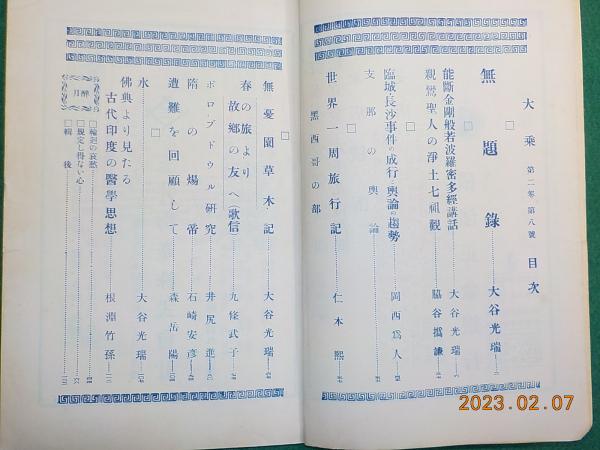 大乘 第二卷 第八號 目次
無題錄 大谷光瑞
能斷金剛般若波羅密多經講話 大谷光瑞
親鸞聖人の淨土七祖觀 脇谷撝謙
臨城、長沙事件の成行と輿論の趨勢 岡西爲人
支那の輿論
世界一周旅行記 仁本熙
墨西哥の部
無憂園草木記 大谷光瑞
春の旅より
故鄕の友へ(歌信) 九條武子
ボロブドウル研究 井尻進
隋の煬帝 石崎安彥
遭難を回顧して 森岳陽
氷 大谷光瑞
佛典より見たる
古代印度の醫學思想 根淵竹孫
醉月
□輪廻の哀愁
□規定し得ない心
□輯後
2023.02.07